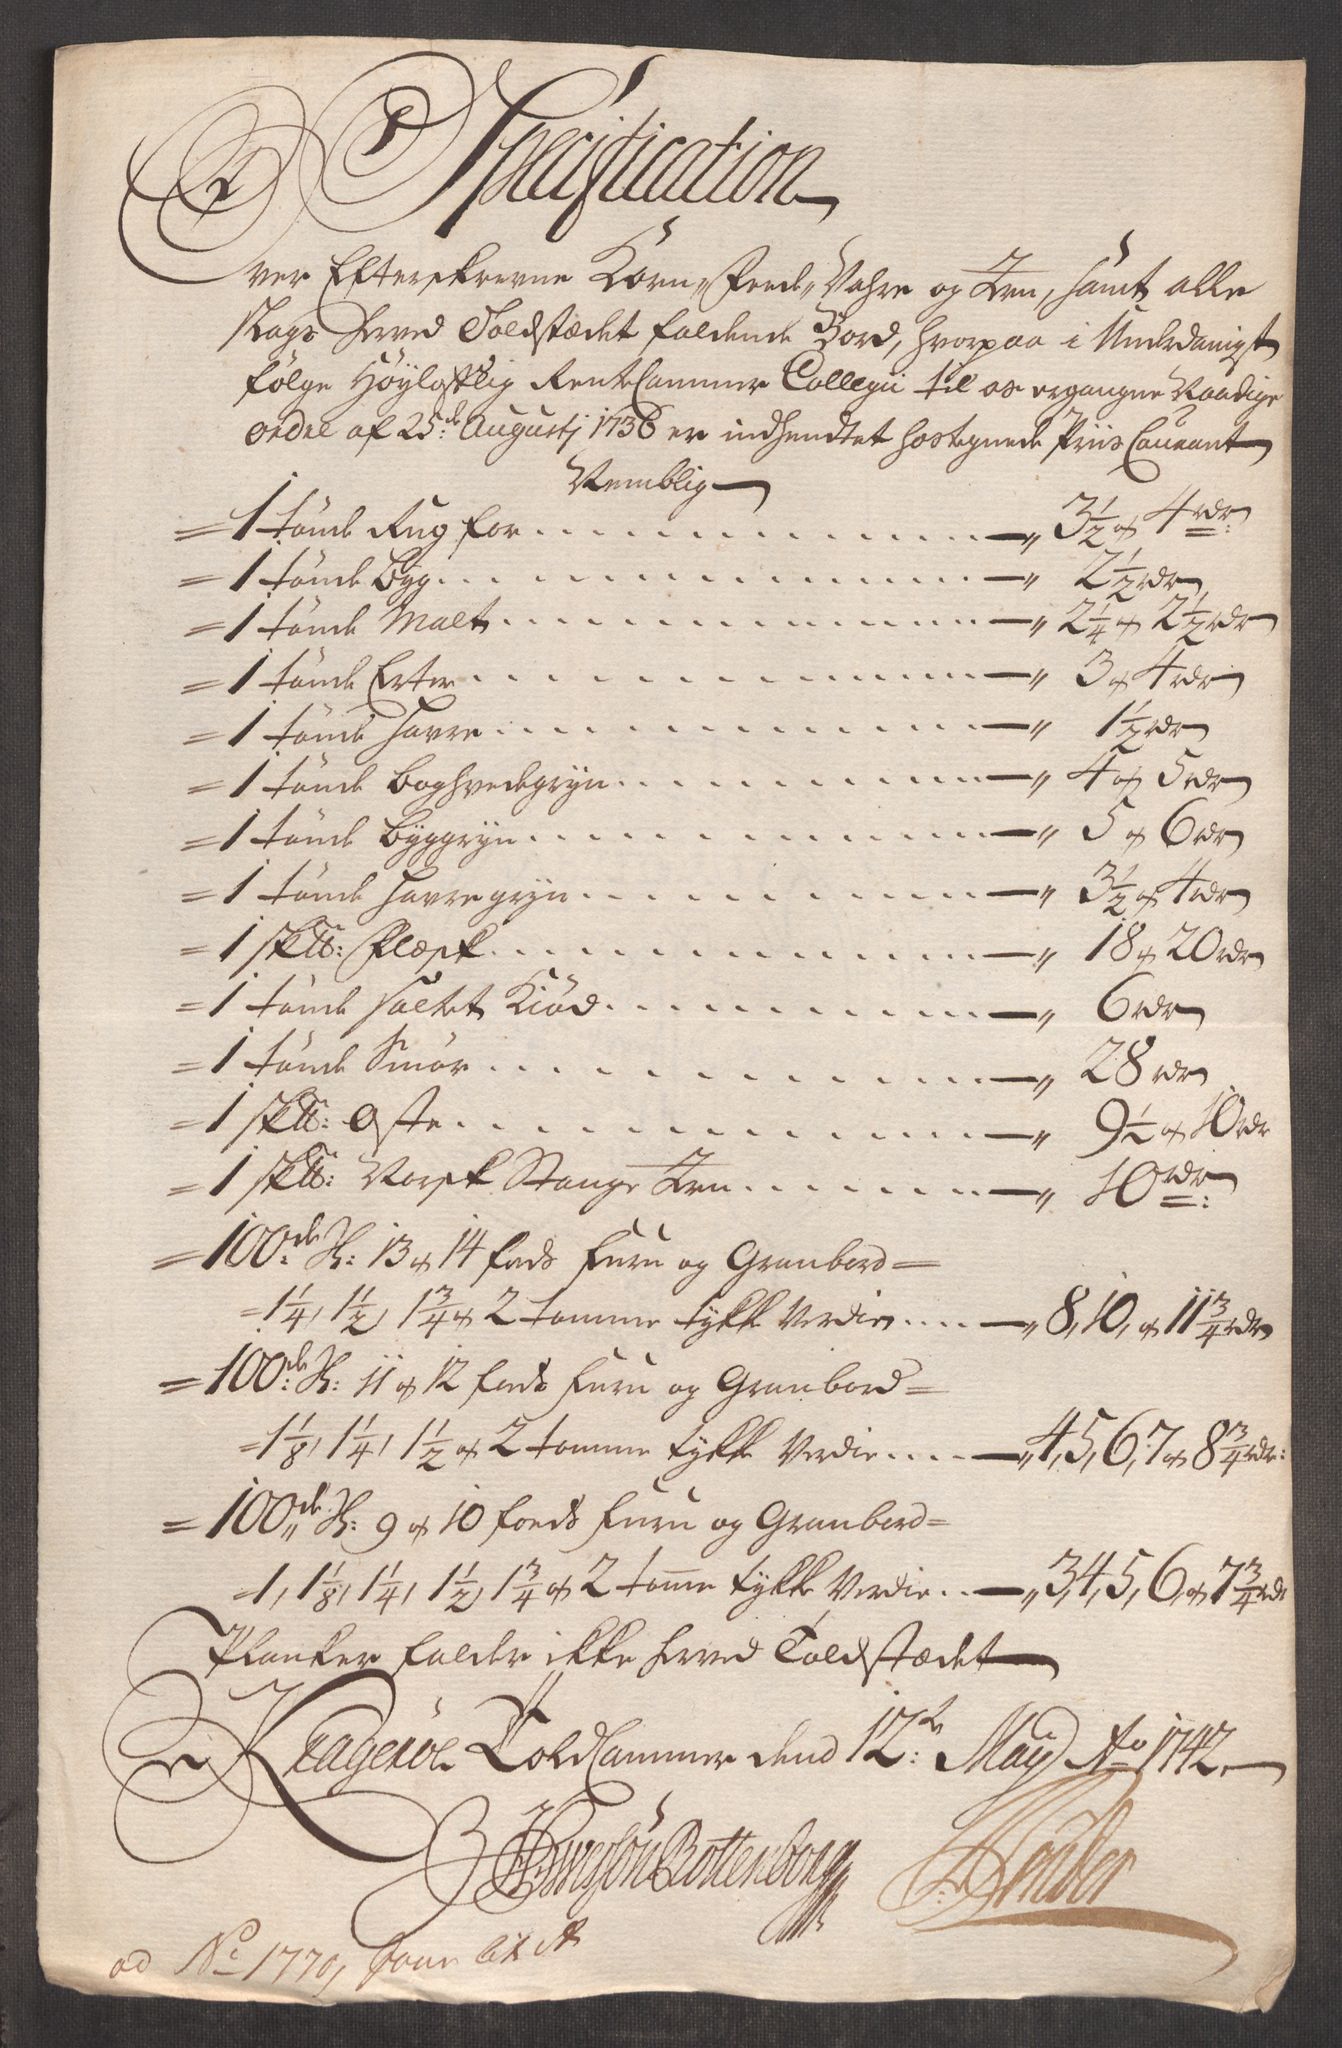 Specification
over Efterskrevne Korn, Feede, Vahre og Træ, samt alle
slags herved Toldstædet faldende Bord, hvorpaa i Underdanigst
følge Höyloflig RenteCammer Collegii til os ergangne Naadige
ordre af 25de Augustj 1738 er indhendtet hostegnede Priis Courant
Nemblig
= 1 tönde Rug for - - - „ 3½ og 4 rdr:
= 1 tönde Byg - - - „ 2½ rdr
= 1 tönde Malt - - - „ 2¼ og 2½ rdr
= 1 tönde Erter - - - „ 3 og 4 rdr
= 1 tönde Havre - - - „ 1½ rdr
= 1 tönde Boghvedegryn - - - „ 4 og 5 rdr
= 1 tönde Byggryn - - - „ 5 og 6 rdr
= 1 tönde Havregryn - - - „ 3½ og 4 rdr
= 1 sk℔: Flæsk - - - „ 18 og 20 rdr
= 1 tönde saltet Kiöd - - - „ 6 rdr
= 1 tönde Smör - - - „ 28 rdr
= 1 sk℔: Oste - - - „ 9½ og 10 rdr
= 1 sk℔: Norsk Stange - - - „ 10 rdr:
= 100de St: 13 og 14 fods Furu og Granbord =
= 1¼, 1½, 1¾ og 2 tomme tykke Verdie - - - „ 8, 10, og 11¾ rdr
= 100de St: 11 og 12 fods Furu og Granbord =
= 1⅛, 1¼, 1½ og 2 tomme tykke Verdie - - - „ 4, 5, 6, 7 og 8¾ rdr:
= 100de St: 9 og 10 foeds Furu og Granbord =
= 1, 1⅛, 1¼, 1½, 1¾ og 2 tomme tykke Verdie - - - „ 3, 4, 5, 6, og 7¾ rdr
Planker falder ikke herved Toldstædet
Krageröe ToldCammer dend 12te Maÿ Ao 1742
Rottenborg
ad No 1770,